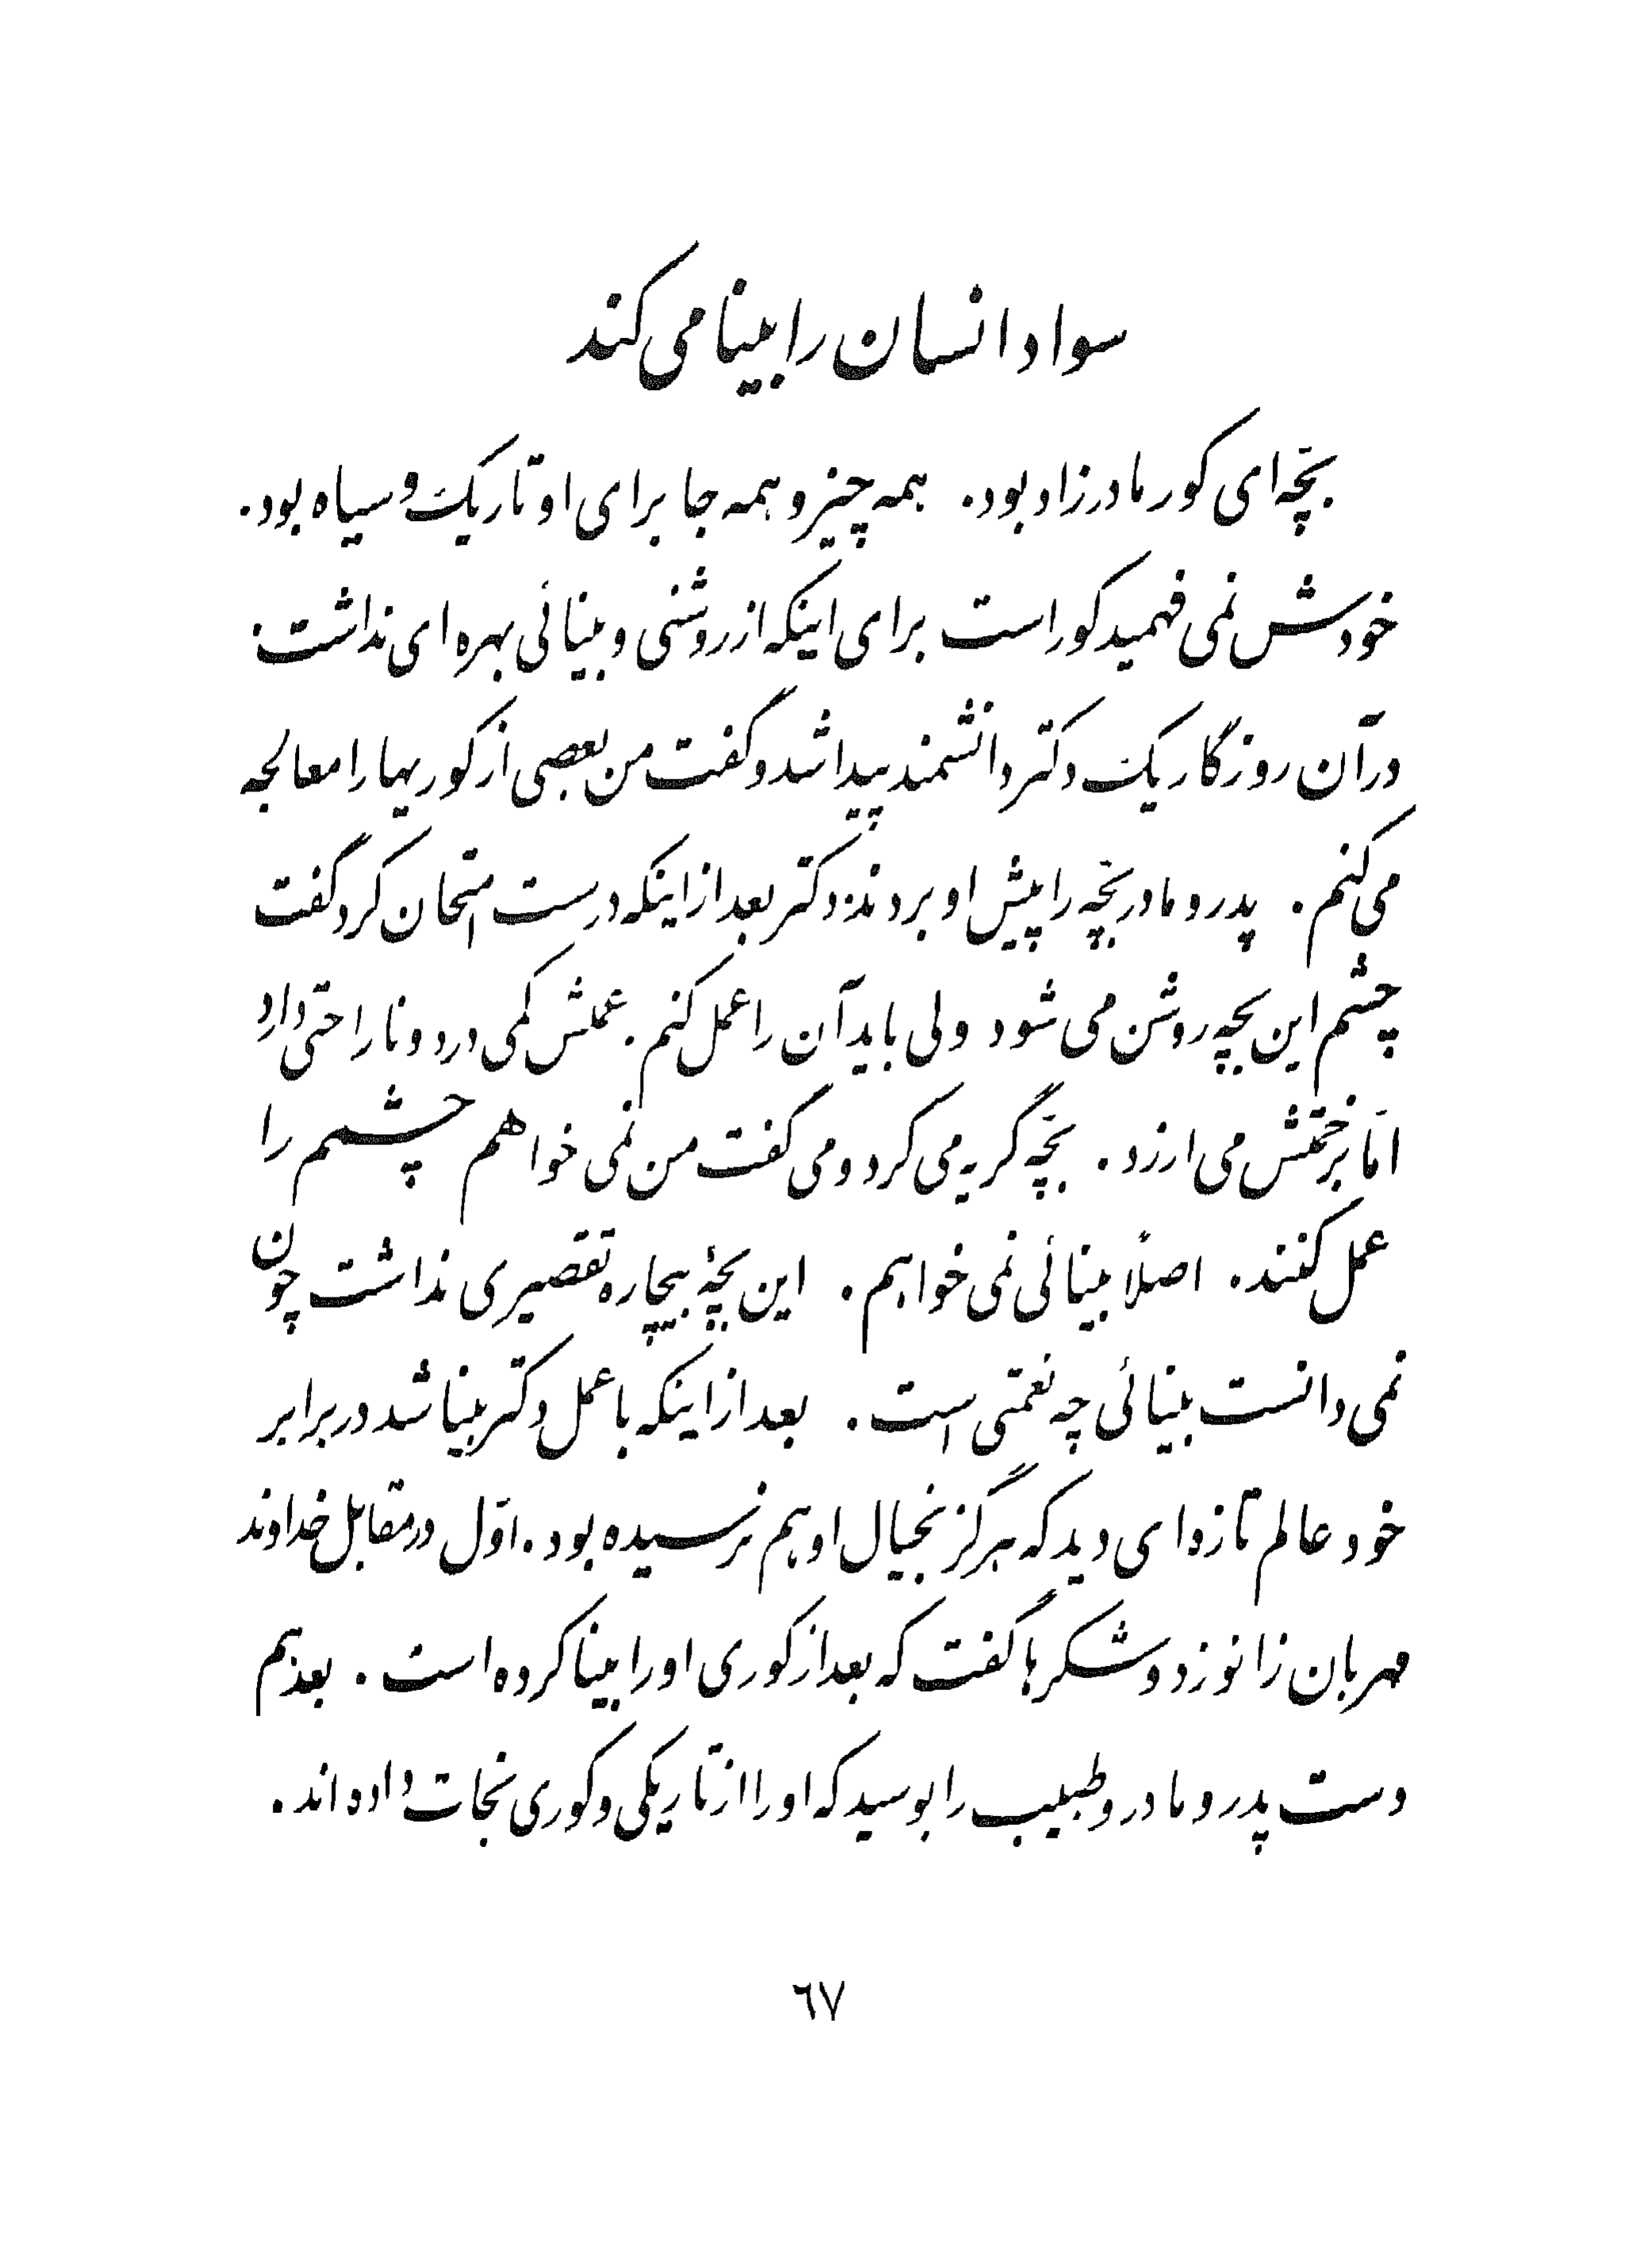 سواد انسان را بینا می‌کند
بچّه‌ای کور مادرزاد بود. همه چیز و همه جا برای او تاریک و سیاه بود.
خودش نمی‌فهمید کور است برای اینکه از روشنی و بینائی بهره‌ای نداشت.
در آن روزگار یک دکتر دانشمند پیدا شد و گفت من بعضی از کوریها را معالجه
می‌کنم. پدر و مادر بچّه را پیش او بردند. دکتر بعد از اینکه درست امتحان کرد گفت
چشم این بچه روشن می‌شود ولی باید آن را عمل کنم. عملش کمی درد و ناراحتی دارد
امّا بزحمتش می‌ارزد. بچّه گریه می‌کرد و می‌گفت من نمی‌خواهم چشمم را
عمل کنند. اصلاً بینائی نمی‌خواهم. این بچّهٔ بیچاره تقصیری نداشت چون
نمی‌دانست بینائی چه نعمتی است. بعد از اینکه با عمل دکتر بینا شد در برابر
خود عالم تازه‌ای دید که هرگز بخیال او هم نرسیده بود. اوّل در مقابل خداوند
مهربان زانو زد و شکرها گفت که بعد از کوری او را بینا کرده است. بعد هم
دست پدر و مادر و طبیب را بوسید که او را از تاریکی و کوری نجات داده‌اند.
٦٧